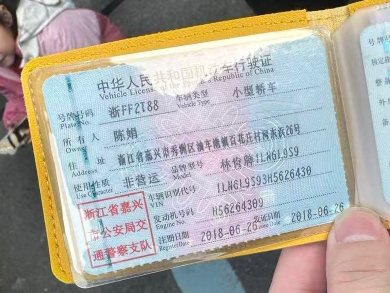 中华人民共和国机动车行驶证
Vehicle License of the People's Republic of China
号牌号码 浙FF2T88 车辆类型 小型轿车
Plate No. Vehicle Type
所有人 陈娟
Owner
住址 浙江省嘉兴市秀洲区油车港镇百花庄村 26号
Address
使用性质 非营运 品牌型号 1LNGL9S9
Use Character Model
浙江省嘉兴
市公安局交
通警察支队
车辆识别代号 1LNGL9S93H5626430
VIN
发动机号码 H56264309
Engine No.
注册日期 2018-06-26 发证日期 2018-06-26
Register Date Issue Date